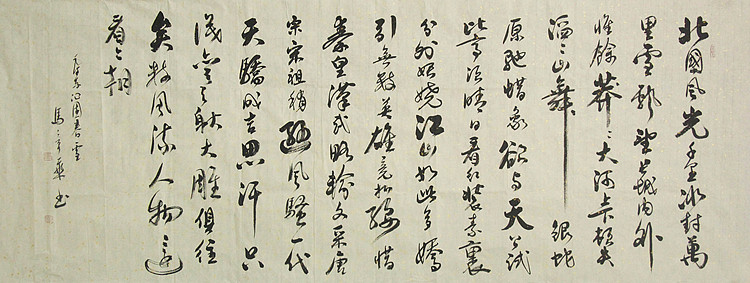 北國風光千里冰封萬
里雪飄望長城內外
惟餘莽〻大河上下頓失
滔〻山舞銀蛇
原馳蜡象欲與天公試
比高須晴日看紅裝素裹
分外妖嬈江山如此多嬌
引無數英雄競折腰惜
秦皇漢武略輸文采唐
宗宋祖稍遜風騷一代
天驕成吉思汗只
識彎弓射大雕俱往
矣數風流人物還
看今朝
毛澤東沁園春雪